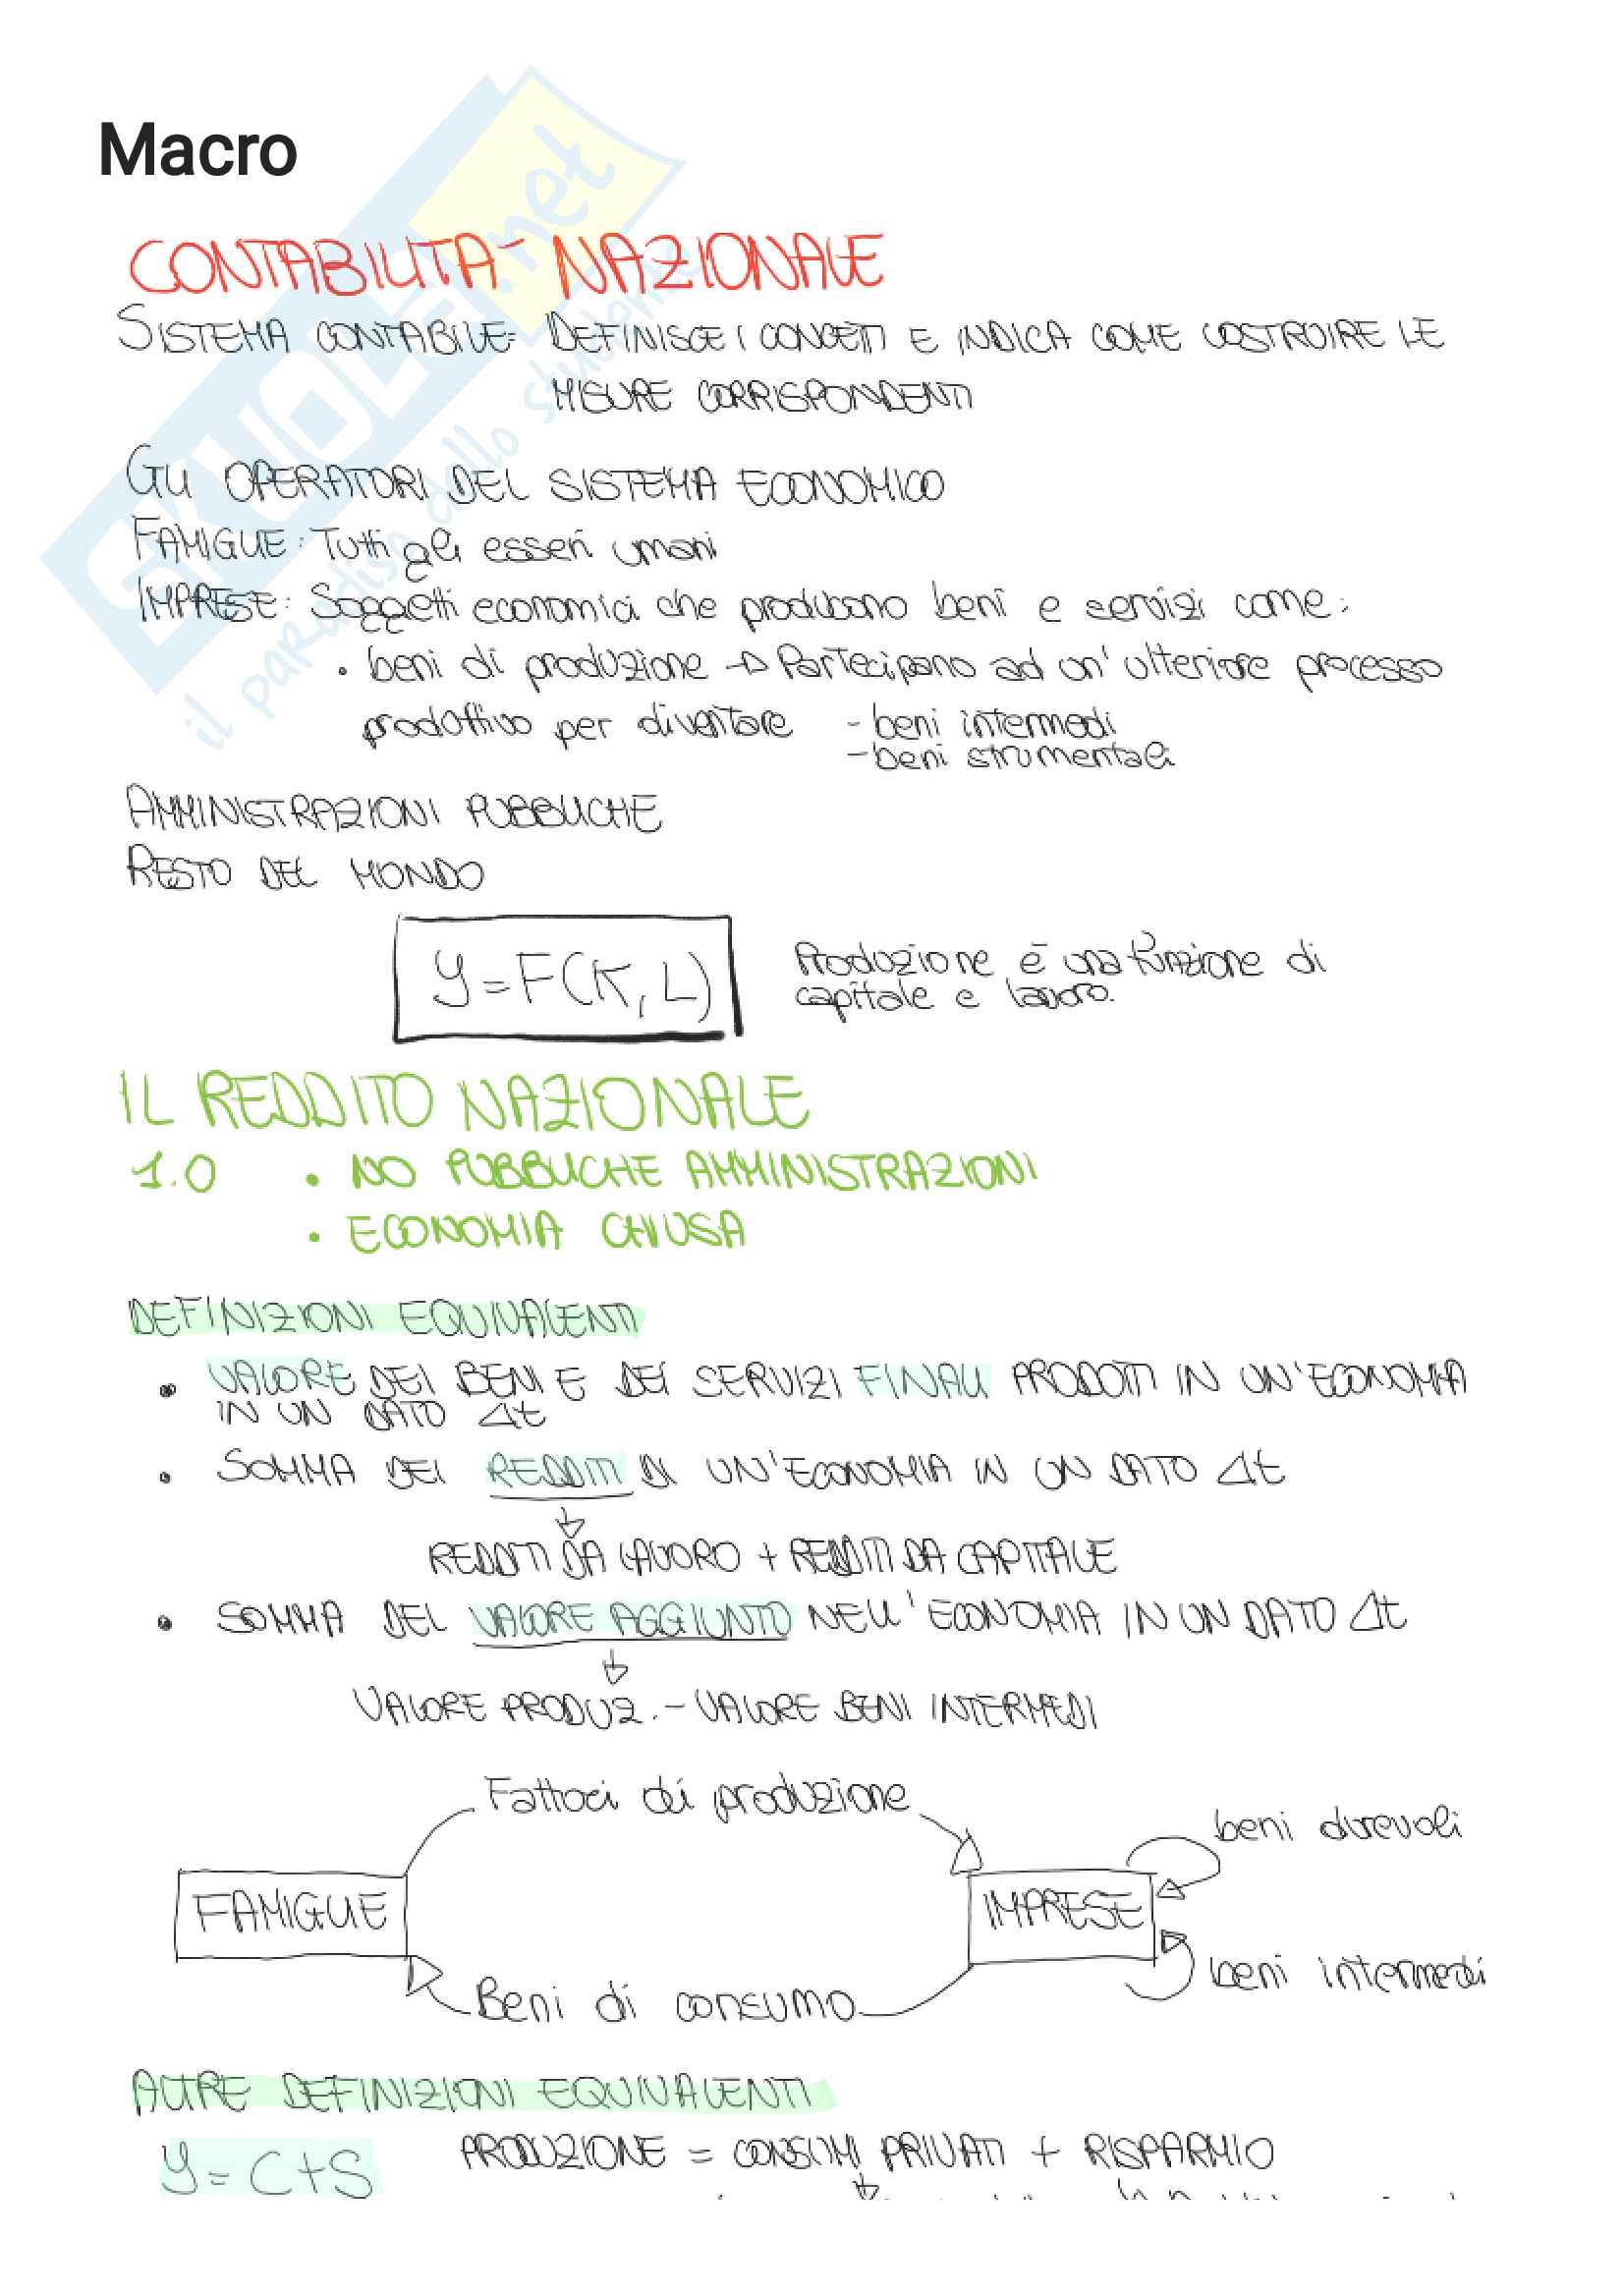 Macro
SKUOLA.net
il paradiso dello studente
CONTABILITA' NAZIONALE
SISTEMA CONTABILE: DEFINISCE I CONCETTI E INDICA COME COSTRUIRE LE
MISURE CORRISPONDENTI
GLI OPERATORI DEL SISTEMA ECONOMICO
FAMIGLIE: Tutti gli esseri umani
IMPRESE: Soggetti economici che producono beni e servizi come:
• beni di produzione → Partecipano ad un'ulteriore processo
produttivo per diventare - beni intermedi
- beni strumentali
AMMINISTRAZIONI PUBBLICHE
RESTO DEL MONDO
Y=F(K,L) Produzione è una funzione di
capitale e lavoro.
IL REDDITO NAZIONALE
1.0 • NO PUBBLICHE AMMINISTRAZIONI
• ECONOMIA CHIUSA
DEFINIZIONI EQUIVALENTI
• VALORE DEI BENI E DEI SERVIZI FINALI PRODOTTI IN UN'ECONOMIA
IN UN DATO Δt
• SOMMA DEI REDDITI DI UN'ECONOMIA IN UN DATO Δt
↓
REDDITI DA LAVORO + REDDITI DA CAPITALE
• SOMMA DEL VALORE AGGIUNTO NELL'ECONOMIA IN UN DATO Δt
↓
VALORE PRODUZ. - VALORE BENI INTERMEDI
Fattori di produzione
beni durevoli
FAMIGLIE IMPRESE
beni intermedi
Beni di consumo
ALTRE DEFINIZIONI EQUIVALENTI
Y=C+S PRODUZIONE = CONSUMI PRIVATI + RISPARMIO